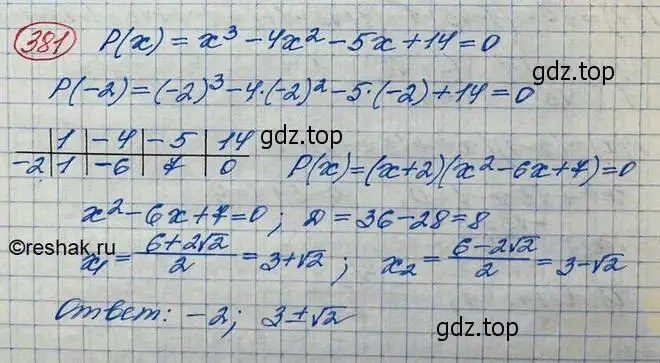 381 P(x) = x³ - 4x² - 5x + 14 = 0
gdz.top
P(-2) = (-2)³ - 4·(-2)² - 5·(-2) + 14 = 0
gdz.top
1 | -4 | -5 | 14
-2 | 1 | -6 | 7 | 0 P(x) = (x+2)(x² - 6x + 7) = 0
x² - 6x + 7 = 0; D = 36 - 28 = 8
©reshak.ru
x₁ = (6+2√2)/2 = 3+√2; x₂ = (6-2√2)/2 = 3-√2
Ответ: -2; 3±√2
gdz.top